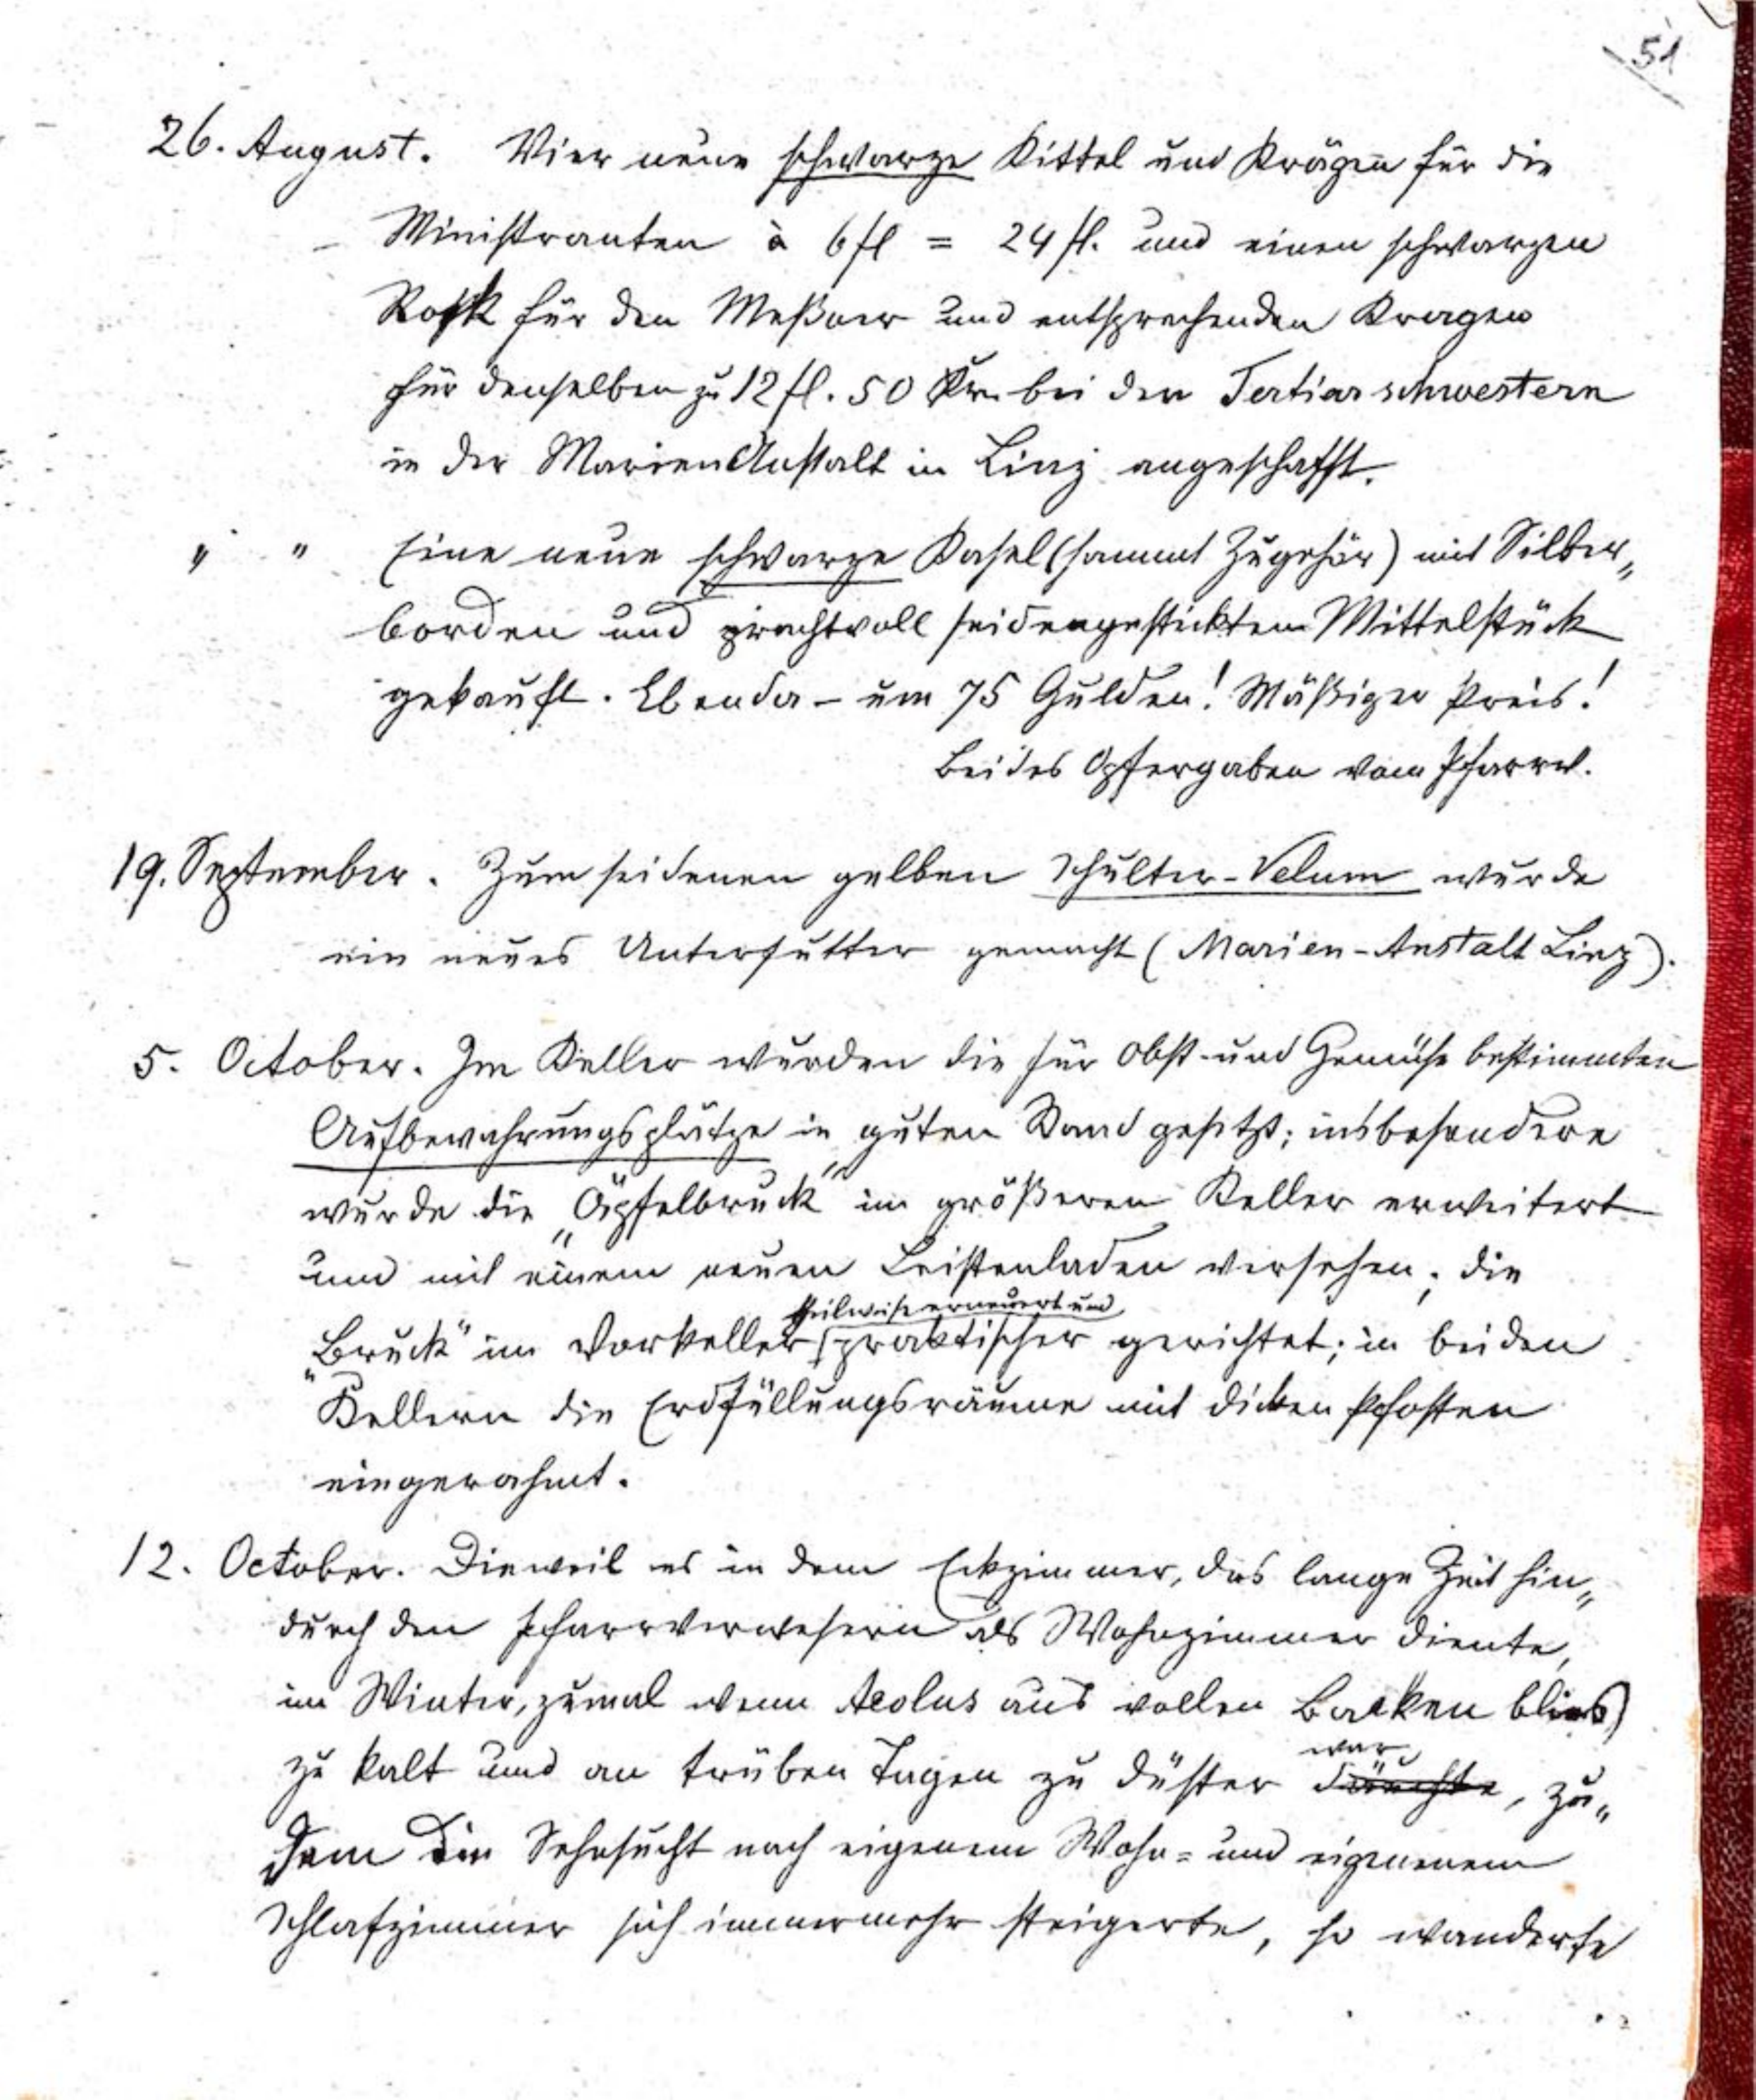 51
26. August. Vier neue schwarze Kittel und Krägen für die
Ministranten à 6 fl = 24 fl. und einen schwarzen
Rock für den Meßner und entsprechenden Kragen
für denselben zu 12 fl. 50 Kr. bei den Tertiarschwestern
in der Marien Anstalt in Linz angeschafft.
" " Eine neue schwarze Kasel (sammt Zugehör) mit Silber„
borden und prachtvoll seidengesticktem Mittelstück
gekauft. Ebenda – um 75 Gulden! Mäßiger Preis!
Beides Opfergaben vom Pfarrv.
19. September. Zum seidenen gelben Schulter-Velum wurde
ein neues Unterfutter gemacht (Marien-Anstalt Linz).
5. October. Im Keller wurden die für Obst- und Gemüse bestimmten
Aufbewahrungsplätze in guten Stand gesetzt; insbesondere
wurde die „Äpfelbruck" im größeren Keller erweitert
und mit einem neuen Leistenladen versehen; die
theilweise erneuert und
„Bruck" im Vorkeller praktischer gerichtet; in beiden
Kellern die Erdfüllungsräume mit dicken Pfosten
eingerahmt.
12. October. Dieweil es in dem Eckzimmer, das lange Zeit hin„
durch den Pfarrverwesern als Wohnzimmer diente,
im Winter, zumal wenn Aeolus aus vollen Backen blies)
zu kalt und an trüben Tagen zu düster däuchte, zu„
war
dem die Sehnsucht nach eigenem Wohn= und eigenem
Schlafzimmer sich immermehr steigerte, so wanderte